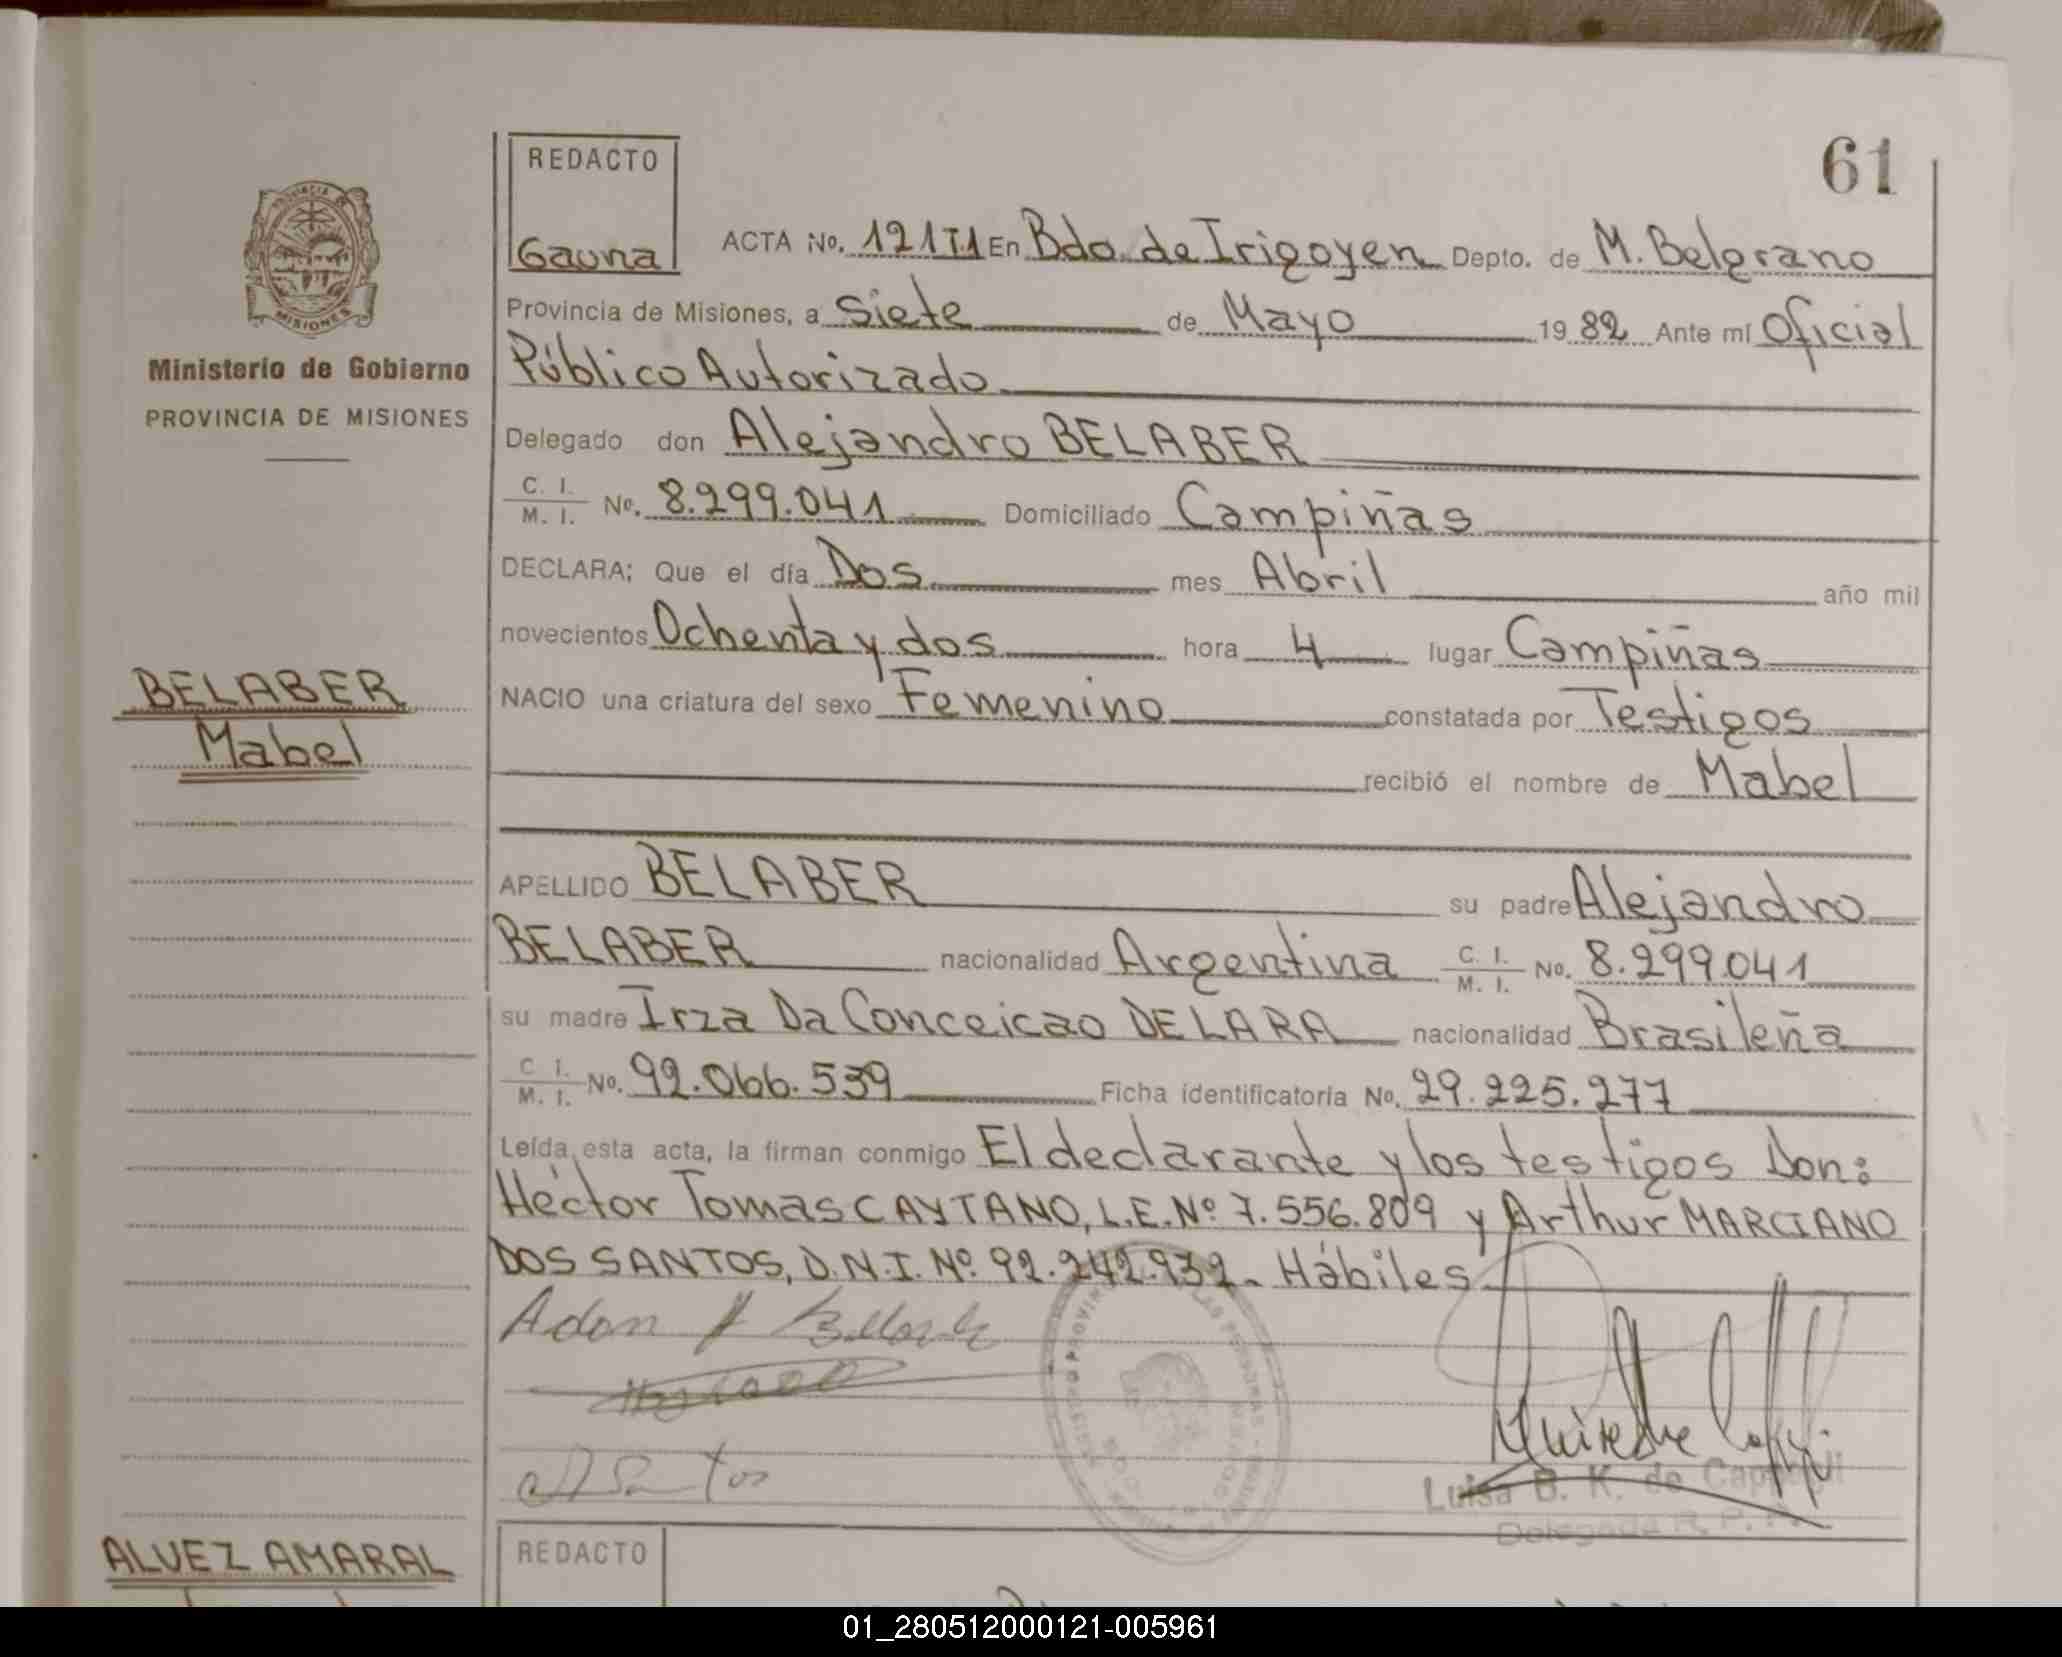 61
REDACTO
Gauna
PROVINCIA DE
MISIONES
Ministerio de Gobierno
PROVINCIA DE MISIONES
ACTA No. 121T1 En Bdo. de Irigoyen Depto. de M. Belgrano
Provincia de Misiones, a Siete de Mayo 1982 Ante mí Oficial
Público Autorizado
Delegado don Alejandro BELABER
C. I.
M. I. No. 8.299.041 Domiciliado Campiñas
DECLARA: Que el día Dos mes Abril año mil
novecientos Ochenta y dos hora 4 lugar Campiñas
BELABER
Mabel
NACIO una criatura del sexo Femenino constatada por Testigos
recibió el nombre de Mabel
APELLIDO BELABER su padre Alejandro
BELABER nacionalidad Argentina C. I. M. I. No. 8.299.041
su madre Irza Da Conceicao DE LARA nacionalidad Brasileña
C. I. M. I. No. 92.066.539 Ficha identificatoria No. 29.225.277
Leída esta acta, la firman conmigo El declarante y los testigos Don:
Héctor Tomas CAYTANO, L.E. Nº 7.556.809 y Arthur MARCIANO
DOS SANTOS, D.N.I. Nº 92.242.932. Hábiles
Luisa B. K. de
Delegada R. P.
ALVEZ AMARAL
REDACTO
01_280512000121-005961